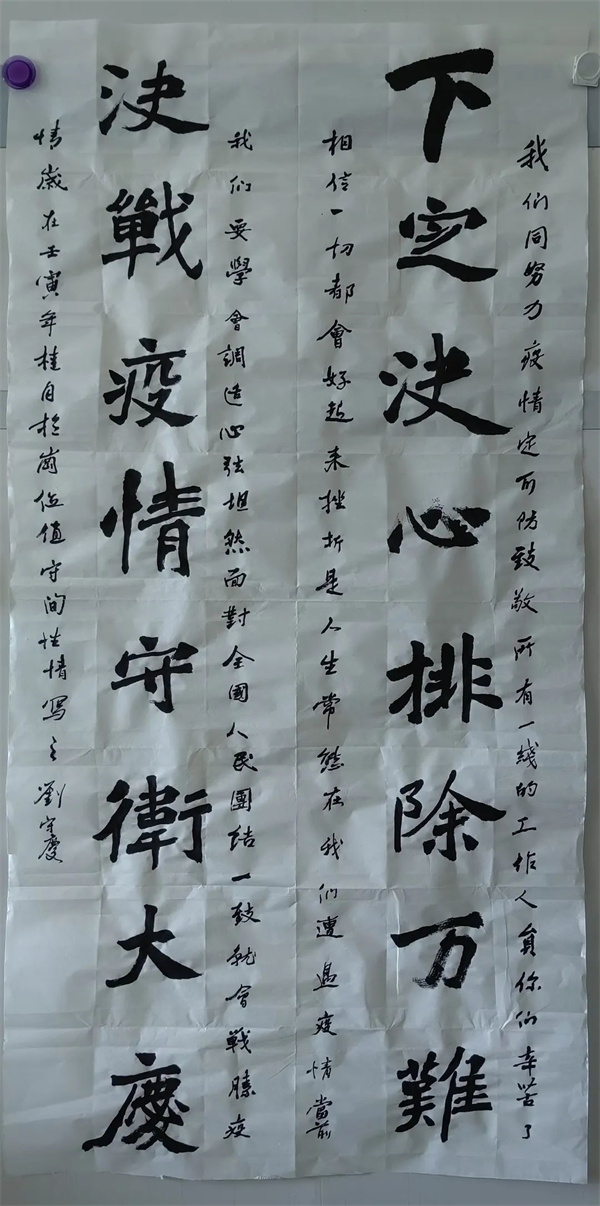 我们同努力疫情定可防致敬所有一线的工作人員你们辛苦了
下定决心排除万難
相信一切都會好起来挫折是人生常態在我们遭遇疫情當前
我们要學會調适心弦坦然面對全國人民團结一致就會戰勝疫
决戰疫情守衛大慶
情歲在壬寅年桂月於崗位值守间性情寫之劉守慶